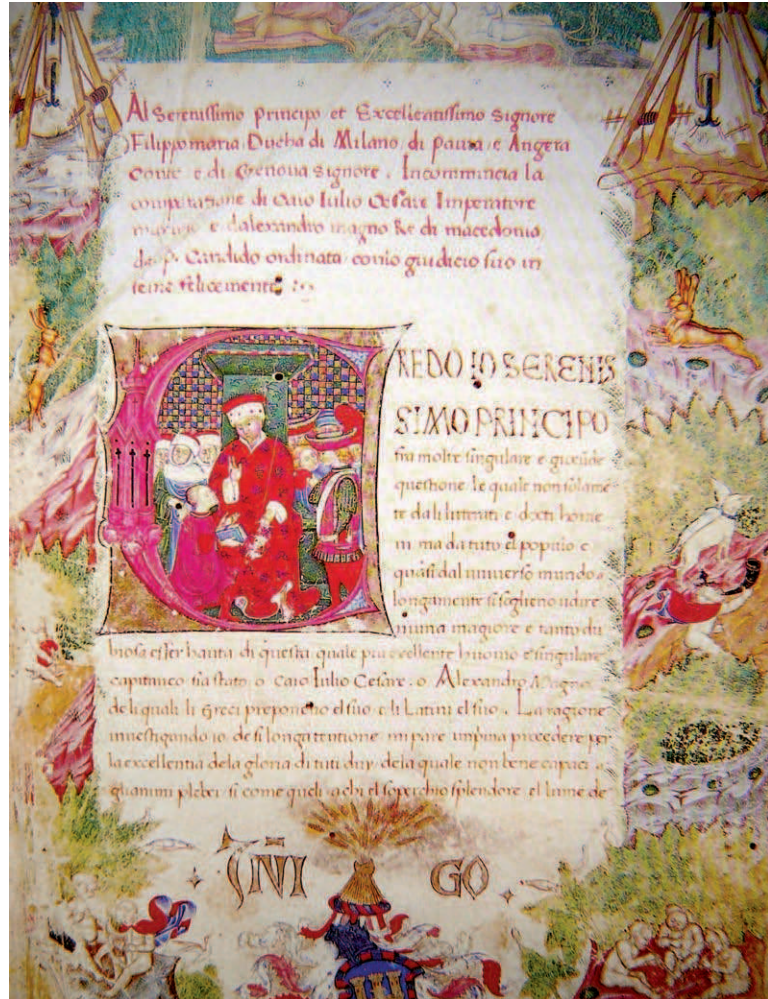 Al Serenissimo principo et Excellentissimo Signore
Filippomaria Ducha di Milano di pauia e Angera
Conte e di Genoua signore. Incommincia la
comparatione di Caio Iulio Cesare Imperatore
maximo e dalexandro magno Re di macedonia
da .p. Candido ordinata con lo giudicio suo in
seme felicemente
CREDO IO SERENIS
SIMO PRINCIPO
fra molte singulare e
questione le quale non solame
te dali litterati e docti home
ni ma da tuto el populo e
quasi dal uniuerso mundo
longamente si sogleno udire
niuna magiore e tanto du
biosa esser hauta di questa quale piu excellente huomo e singulare
capitaneo sia stato o Caio Iulio Cesare o Alexandro Magno
deli quali li Greci preponeno el suo e li Latini el suo. La ragione
inuestigando io de si longa mi pare in prima procedere per
la excellentia dela gloria di tuti duy dela quale non bene capaci
gli animi plebei si come queli a chi el soperchio splendore el lume de
GO